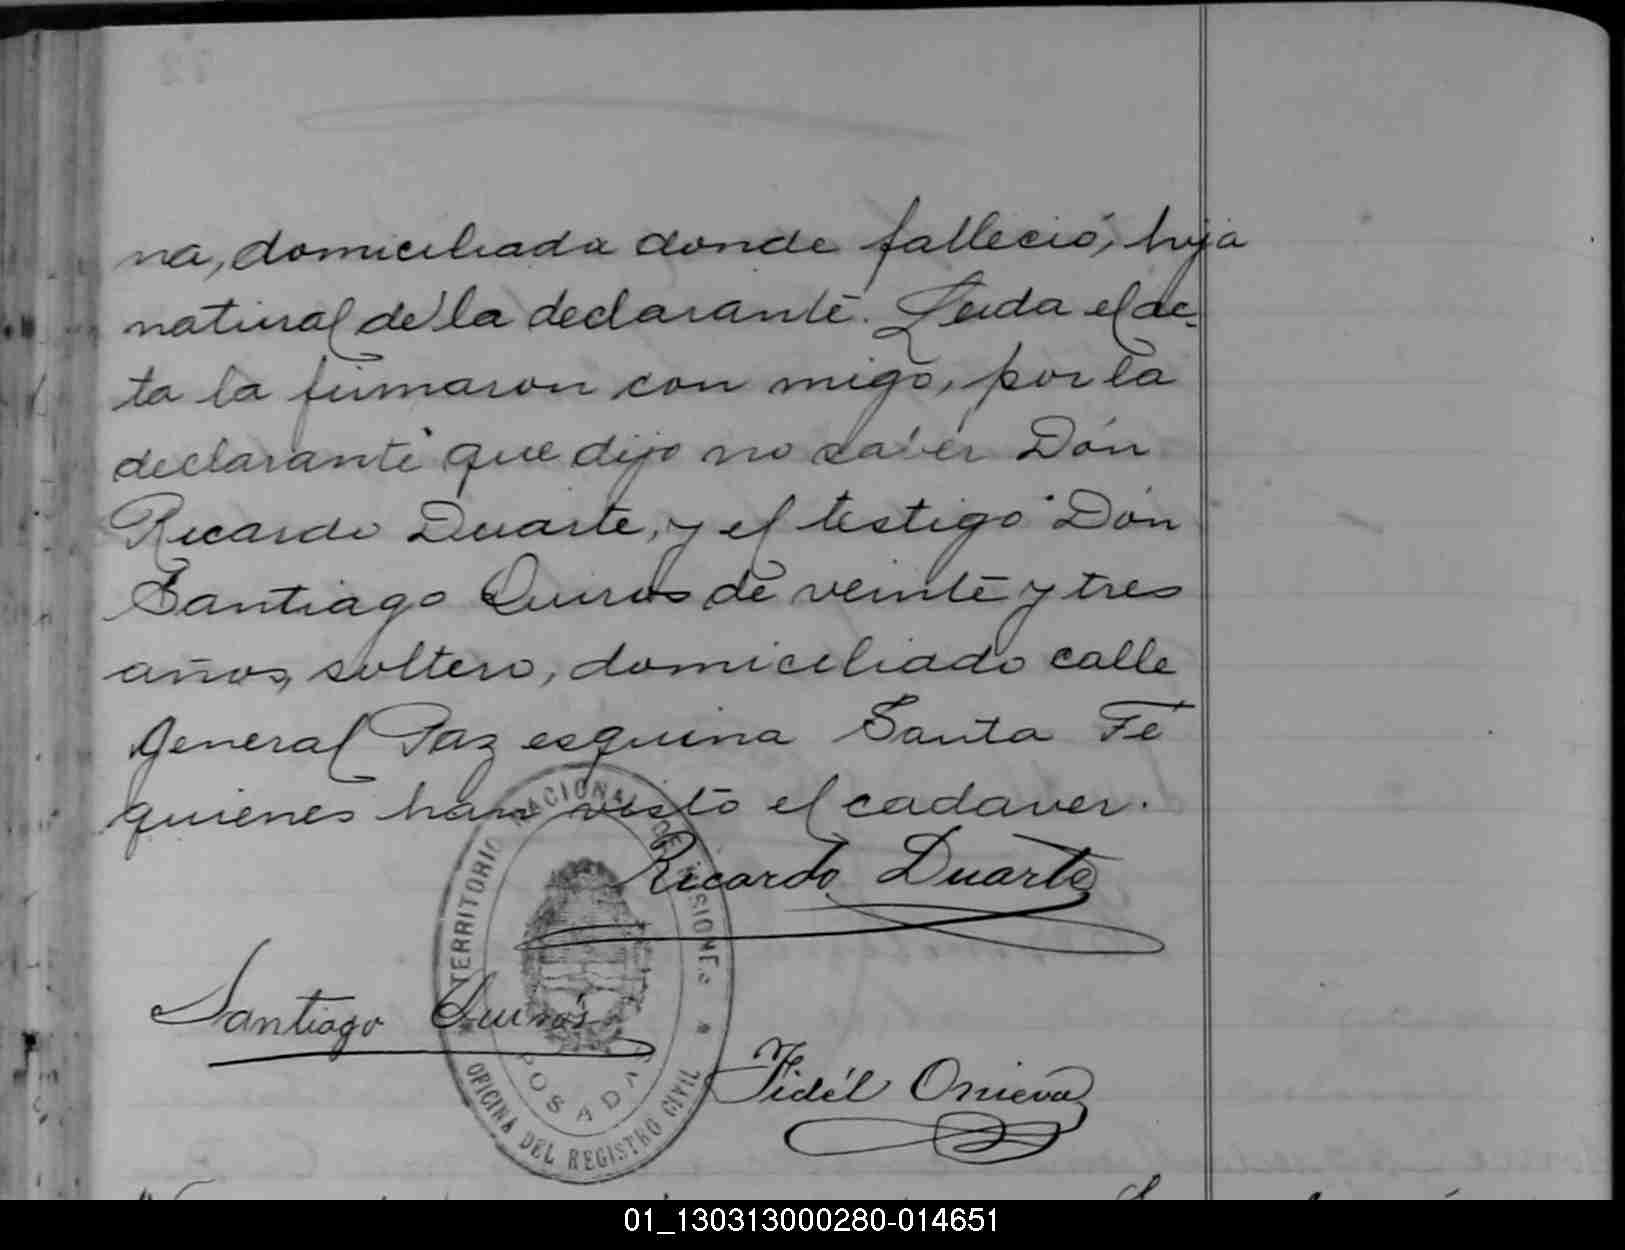 na, domiciliada donde falleció, hija
natural de la declarante. Leida el ac-
ta la firmaron con migo, por la
declarante que dijo no saber Dón
Ricardo Duarte, y el testigo Dón
Santiago Quiros de veinte y tres
años, soltero, domiciliado calle
General Paz esquina Santa Fé
quienes han visto el cadaver.
Ricardo Duarte
Santiago Quirós
Fidél
TERRITORIO NACIONAL DE MISIONES
POSADAS
OFICINA DEL REGISTRO CIVIL
01_130313000280-014651